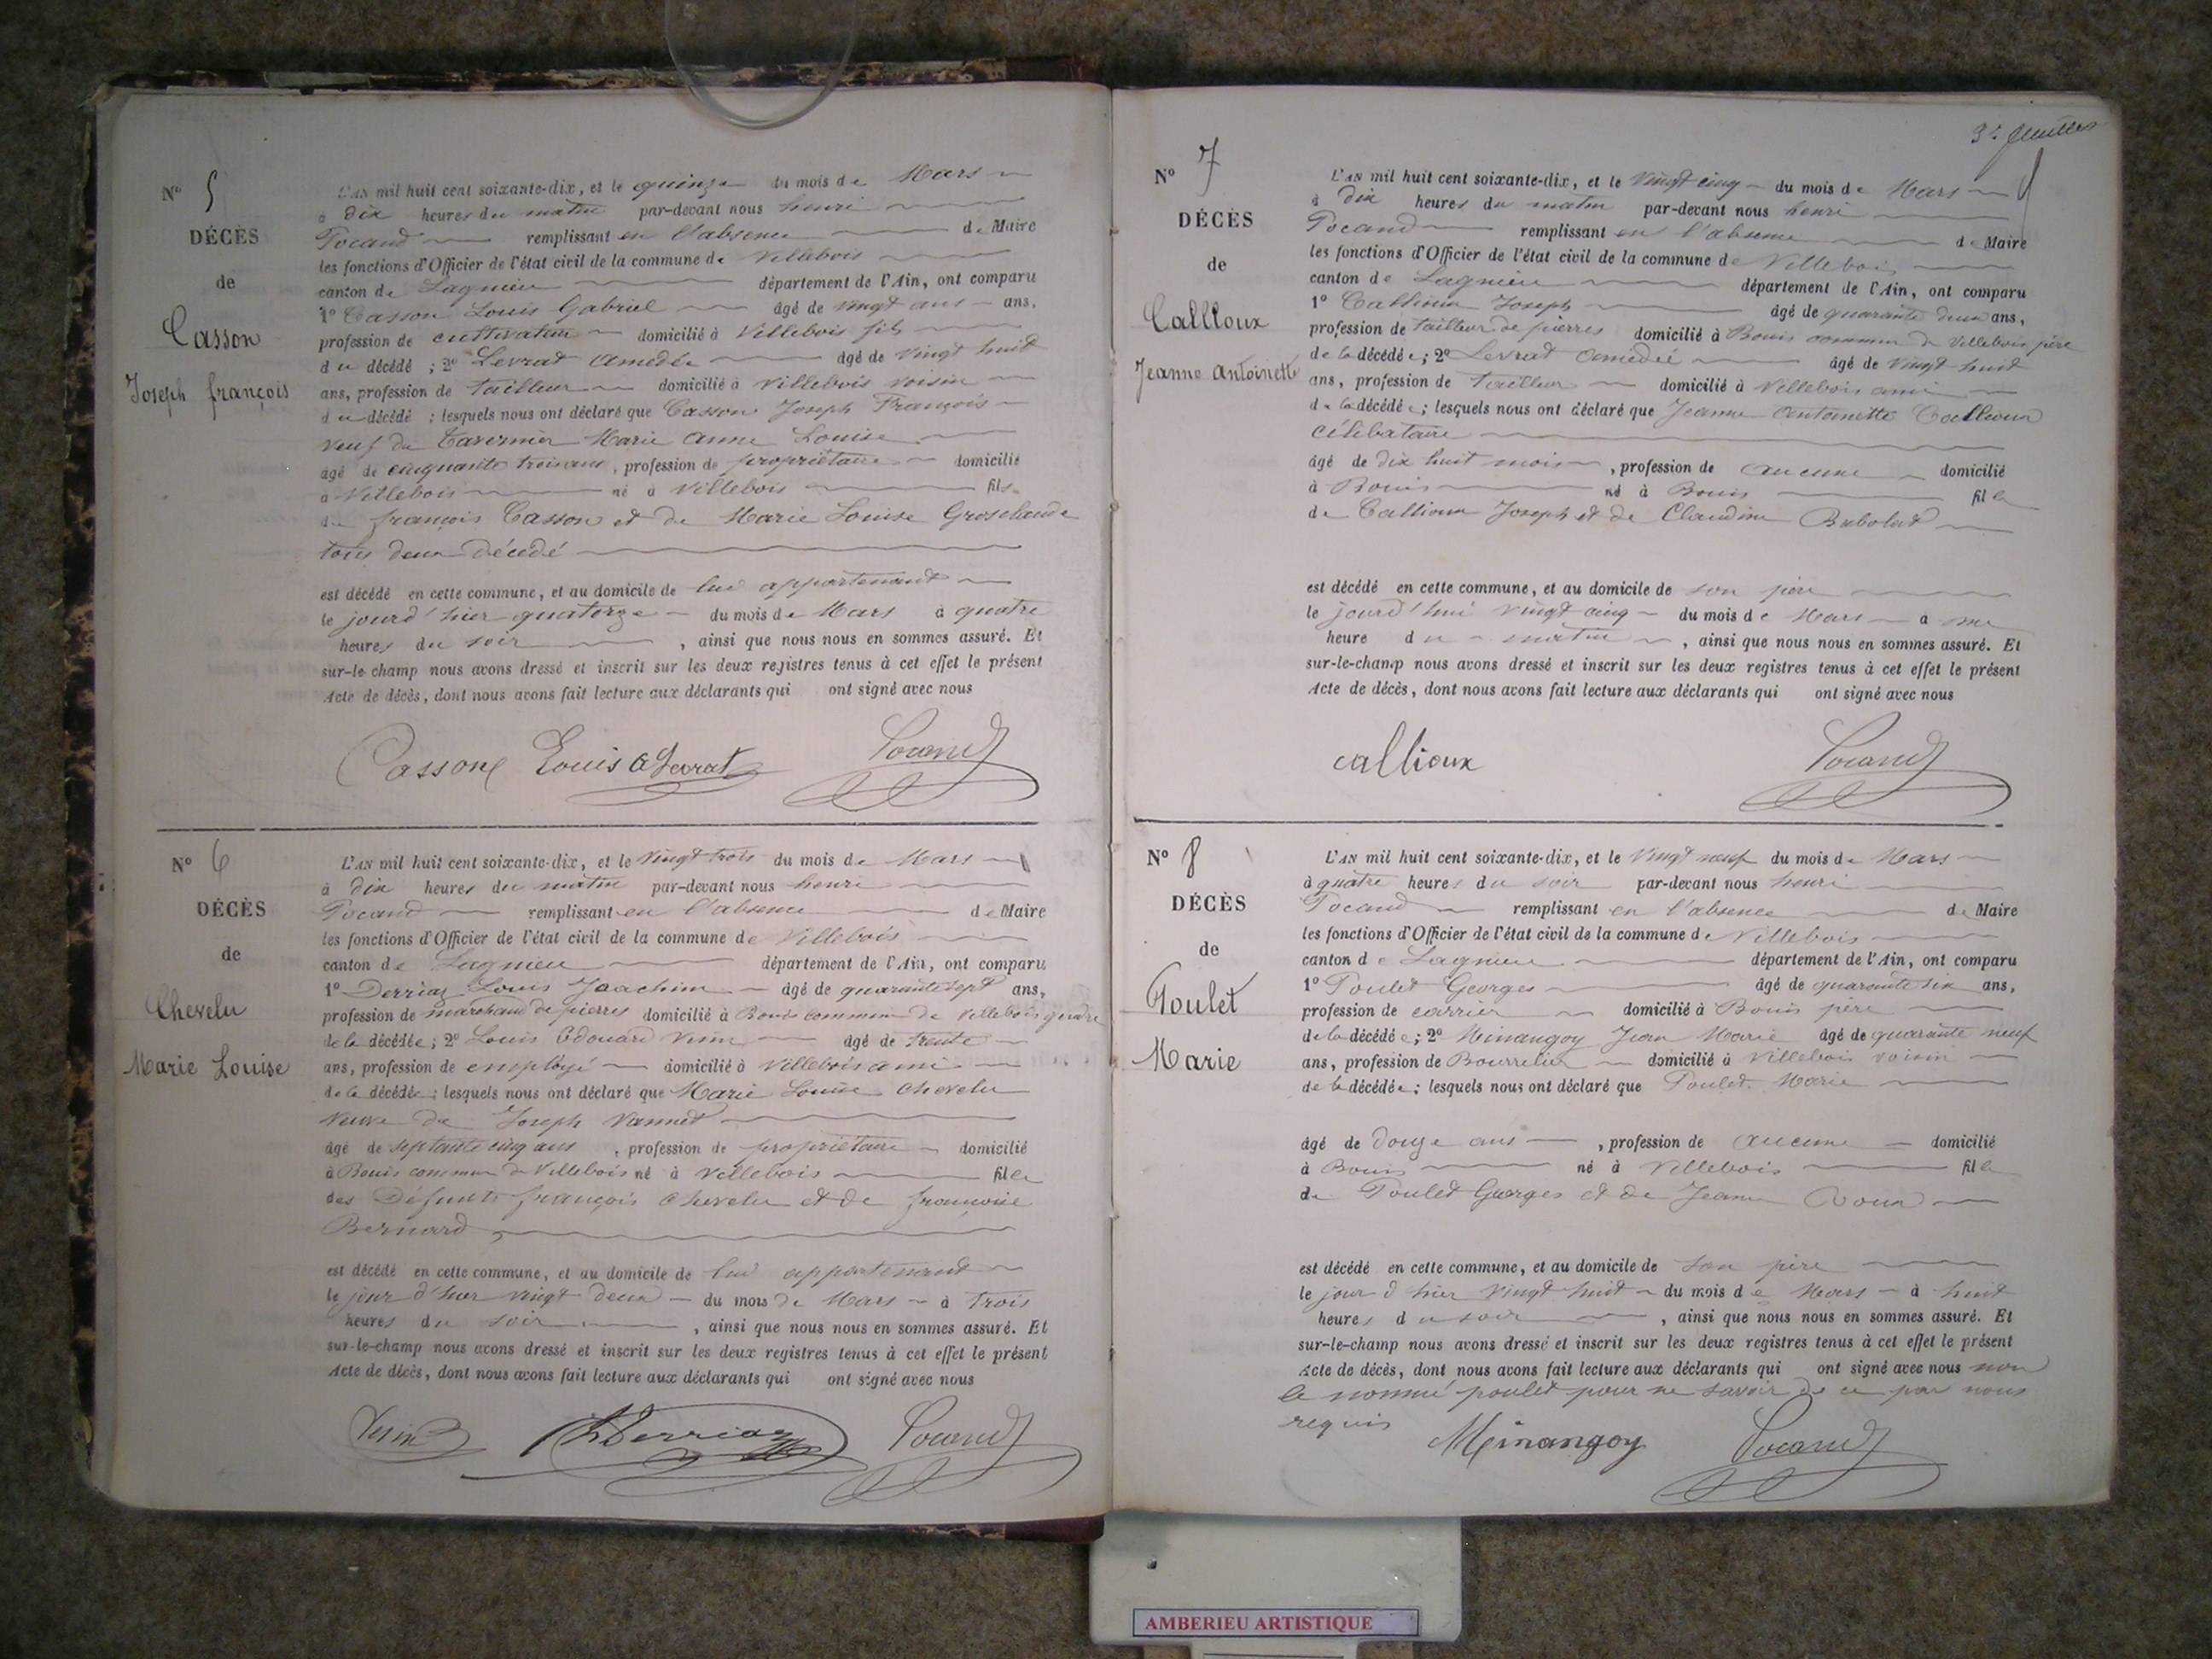 N° 5
DÉCÈS
de
Casson
Joseph françois
L'AN mil huit cent soixante-dix, et le quinze du mois de Mars
à dix heures du matin par-devant nous henri
Pocand remplissant en l'absence de Maire
les fonctions d'Officier de l'état civil de la commune de Villebois
canton de Lagnieu département de l'Ain, ont comparu
1° Casson Louis Gabriel âgé de vingt ans ans,
profession de cultivateur domicilié à Villebois fils
du décédé ; 2° Levrat Amedée âgé de vingt huit
ans, profession de tailleur domicilié à Villebois voisin
du décédé ; lesquels nous ont déclaré que Casson Joseph François
veuf de Tavernier Marie Anne Louise
âgé de cinquante trois ans, profession de propriétaire domicilié
à Villebois né à Villebois fils
de françois Casson et de Marie Louise Groselaude
tous deux décédé
est décédé en cette commune, et au domicile de lui appartenant
le jourd'hier quatorze du mois de Mars à quatre
heures du soir, ainsi que nous nous en sommes assuré. Et
sur-le-champ nous avons dressé et inscrit sur les deux registres tenus à cet effet le présent
Acte de décès, dont nous avons fait lecture aux déclarants qui ont signé avec nous
Casson Louis A Levrat Pocand
N° 6
DÉCÈS
de
Chevelu
Marie Louise
L'AN mil huit cent soixante-dix, et le vingt trois du mois de Mars
à dix heures du matin par-devant nous henri
Pocand remplissant en l'absence de Maire
les fonctions d'Officier de l'état civil de la commune de Villebois
canton de Lagnieu département de l'Ain, ont comparu
1° Derriaz Louis Joachim âgé de quarante sept ans,
profession de marchand de pierres domicilié à Bouis commune de Villebois gendre
de la décédée ; 2° Louis Edouard Vesin âgé de trente
ans, profession de employé domicilié à Villebois ami
de la décédée ; lesquels nous ont déclaré que Marie Louise Chevelu
veuve de Joseph Vannet
âgé de septante cinq ans, profession de propriétaire domicilié
à Bouis commune de Villebois né à Villebois fille
des Défunts françois Chevelu et de françoise
Bernard
est décédé en cette commune, et au domicile de lui appartenant
le jour d'hier vingt deux du mois de Mars à trois
heures du soir, ainsi que nous nous en sommes assuré. Et
sur-le-champ nous avons dressé et inscrit sur les deux registres tenus à cet effet le présent
Acte de décès, dont nous avons fait lecture aux déclarants qui ont signé avec nous
Vesin Derriaz Pocand
3e feuillet
N° 7
DÉCÈS
de
Callloux
Jeanne Antoinette
L'AN mil huit cent soixante-dix, et le vingt cinq du mois de Mars
à dix heures du matin par-devant nous henri
Pocand remplissant en l'absence de Maire
les fonctions d'Officier de l'état civil de la commune de Villebois
canton de Lagnieu département de l'Ain, ont comparu
1° Callioux Joseph âgé de quarante deux ans,
profession de tailleur de pierres domicilié à Bouis commune de Villebois père
de la décédée ; 2° Levrat Amedée âgé de vingt huit
ans, profession de tailleur domicilié à Villebois ami
de la décédée ; lesquels nous ont déclaré que Jeanne Antoinette Callioux
célibataire
âgé de dix huit mois, profession de aucune domicilié
à Bouis né à Bouis fille
de Callioux Joseph et de Claudine Babolat
est décédé en cette commune, et au domicile de son père
le jourd'hui vingt cinq du mois de Mars à une
heure du matin, ainsi que nous nous en sommes assuré. Et
sur-le-champ nous avons dressé et inscrit sur les deux registres tenus à cet effet le présent
Acte de décès, dont nous avons fait lecture aux déclarants qui ont signé avec nous
callioux Pocand
N° 8
DÉCÈS
de
Poulet
Marie
L'AN mil huit cent soixante-dix, et le vingt neuf du mois de Mars
à quatre heures du soir par-devant nous henri
Pocand remplissant en l'absence de Maire
les fonctions d'Officier de l'état civil de la commune de Villebois
canton de Lagnieu département de l'Ain, ont comparu
1° Poulet Georges âgé de quarante six ans,
profession de carrier domicilié à Bouis père
de la décédée ; 2° Minangoy Jean Marie âgé de quarante neuf
ans, profession de Bourrelier domicilié à Villebois voisin
de la décédée ; lesquels nous ont déclaré que Poulet Marie
âgé de douze ans, profession de aucune domicilié
à Bouis né à Villebois fille
de Poulet Georges et de Jeanne
est décédé en cette commune, et au domicile de son père
le jour d'hier vingt huit du mois de Mars à huit
heures du soir, ainsi que nous nous en sommes assuré. Et
sur-le-champ nous avons dressé et inscrit sur les deux registres tenus à cet effet le présent
Acte de décès, dont nous avons fait lecture aux déclarants qui ont signé avec nous non
le nommé poulet pour ne savoir de ce par nous
requis
Minangoy Pocand
AMBERIEU ARTISTIQUE